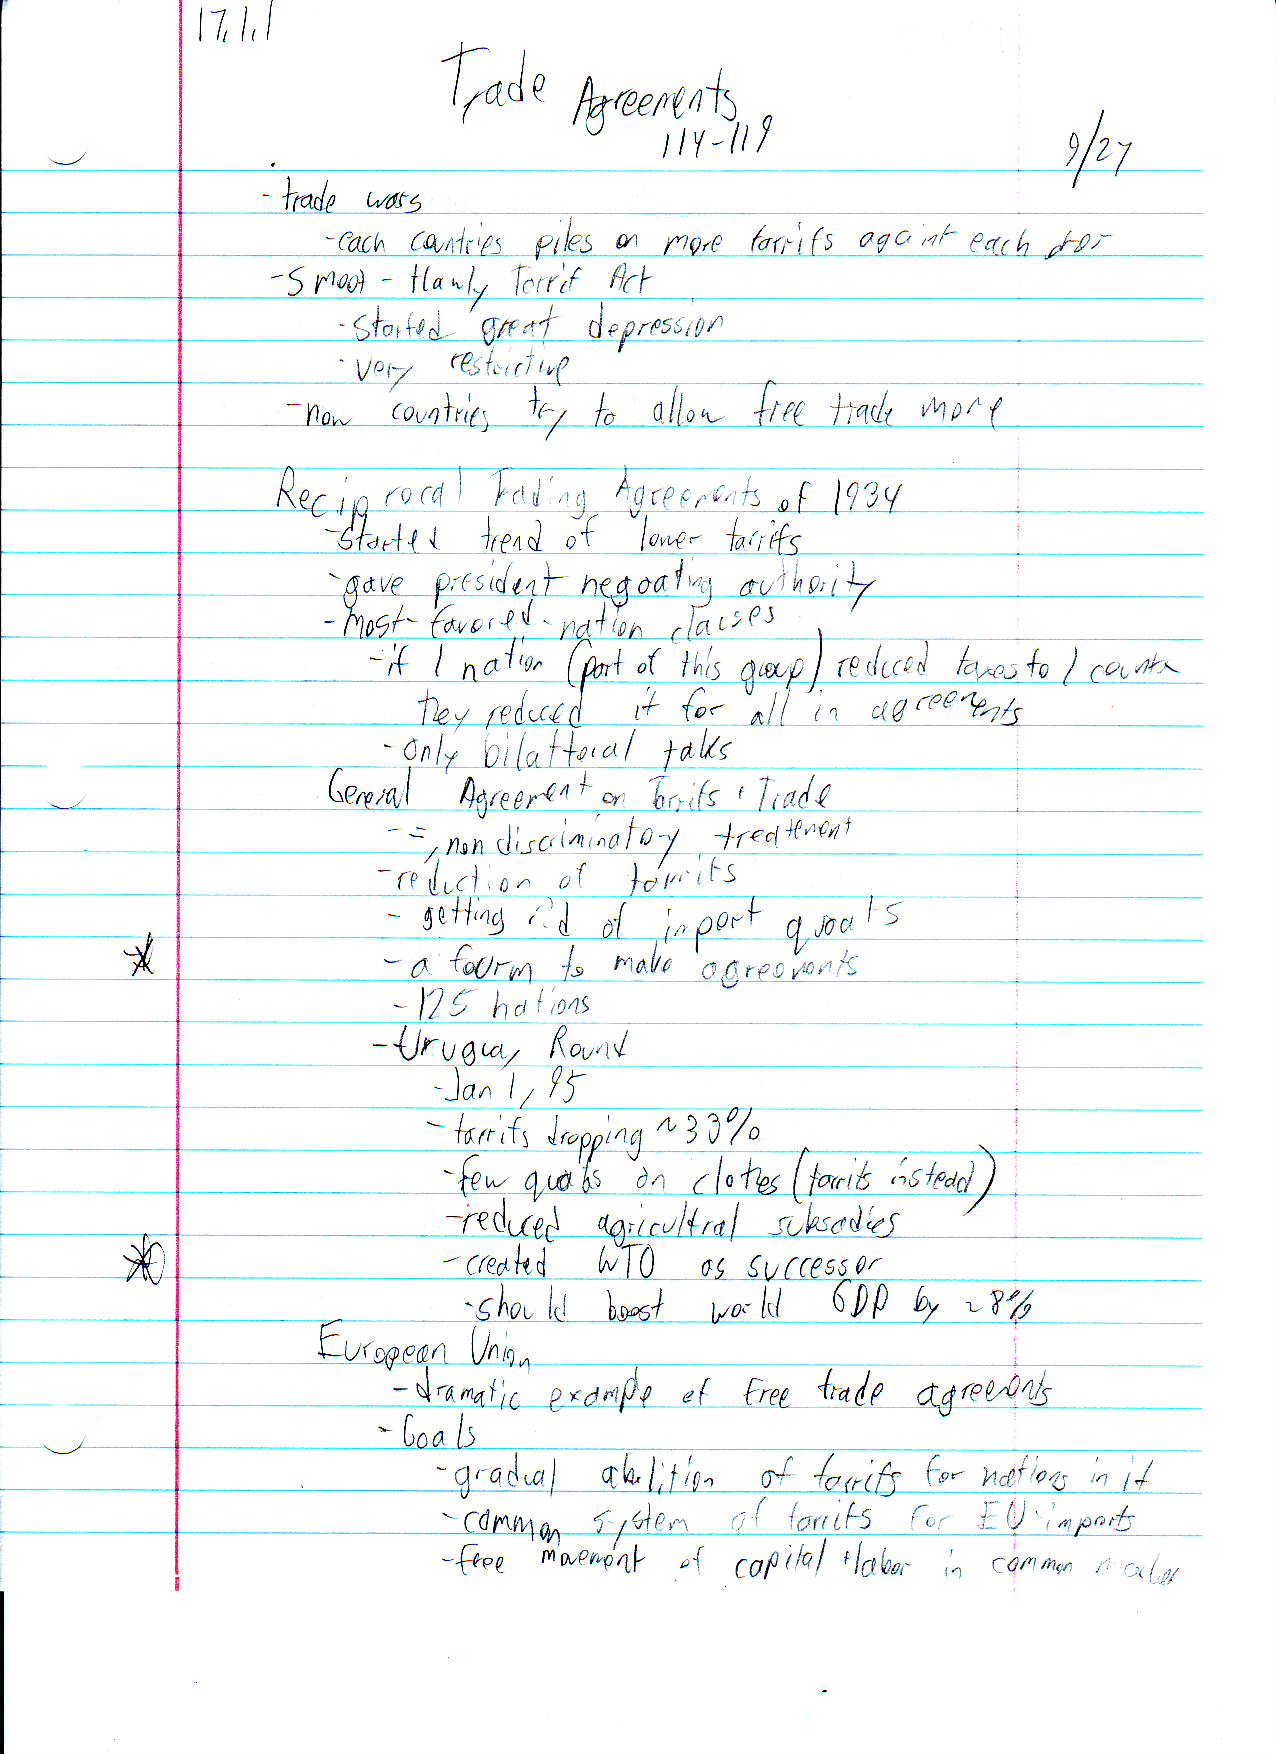 17.1.1
Trade Agreements
114-119
9/27
- trade wars
- each countries piles on more tarrifs againt each
- Smoot - Hawly Tarrif Act
- started great depression
- very restrictive
- now countries try to allow free trade more
Reciprocal Trading Agreements of 1934
- started trend of lower tarrifs
- gave president negoating authority
- most-favored-nation clauses
- if 1 nation (part of this group) reduced taxes to 1
they reduced it for all in agreements
- only bilatteral talks
General Agreement on Tarrifs + Trade
- =, non discriminatory treatement
- reduction of tarrifs
- getting rid of import quoats
- a fourm to make agreements
- 125 nations
- Uruguay Round
- Jan 1, 95
- tarrifs dropping ~33%
- few quoats on clothes (tarrifs instead)
- reduced agricultral subsadies
- created WTO as successor
- should boost world GDP by ~8%
European Union
- dramatic example of free trade agreements
- Goals
- gradual abolition of tarrifs for nations in it
- common system of tarrifs for EU imports
- free movement of capital + labor in common